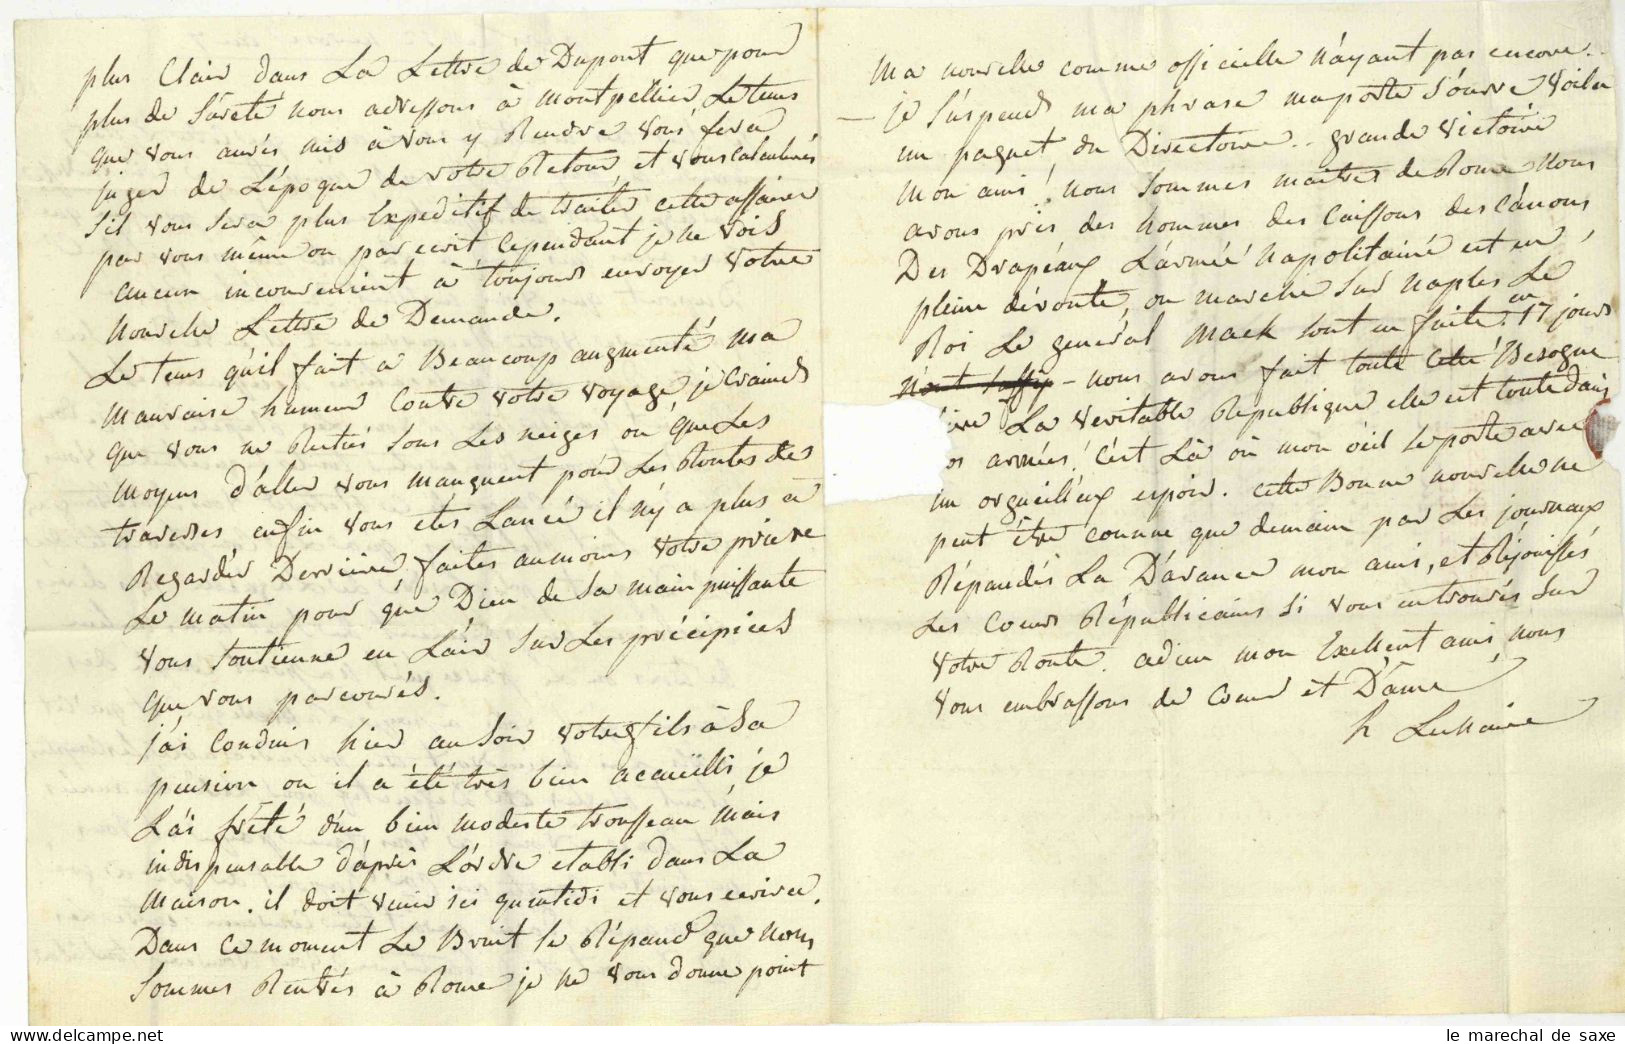 plus Clair dans La Lettre de Dupont que pour
plus de Sûreté nous adressons à Montpellier Le tems
que vous aurés mis à vous y Rendre vous fera
juger de L'époque de votre Retour, et vous calculerés
s'il vous sera plus Expeditif de traiter cette affaire
par vous même ou par ecrit cependant je ne vois
aucun inconvenient à toujours envoyer votre
nouvelle Lettre de Demande.
Le tems qu'il fait a Beaucoup augmenté ma
mauvaise humeur Contre votre voyage, je Crains
que vous ne Restiés sous Les neiges ou que Les
moyens d'aller vous manquent pour Les Routes de
traverses enfin vous etes Lancé il n'y a plus à
Regarder Derriere faites au moins votre priere
Le matin pour que Dieu de Sa main puissante
vous soutienne en L'air sur Les précipices
que vous parcourés.
j'ai Conduis hier au soir votre fils à Sa
pension ou il a été très bien accueilli, je
L'ai frété d'un bien modeste trousseau mais
indispensable d'après L'ordre etabli dans La
Maison. il doit venir ici quintidi et vous ecrire.
Dans ce moment Le Bruit se Répand que nous
Sommes Rentrés à Rome je ne vous donne point
Ma nouvelle comme officielle n'ayant pas encore..
— je suspend ma phrase ma porte s'ouvre voila
un paquet du Directoire.. grande victoire
Mon ami! nous sommes maitres de Rome nous
avons pris des hommes des Caissons des Canons
Des Drapeaux L'armée Napolitaine est en
pleine déroute, on marche sur Naples Le
Roi Le general Mack sont en fuite. en 17 jours
nous avons fait toute cette Besogne
La veritable Republique elle est toute dans
armées! C'est Là où mon œil se porte avec
un orgueilleux espoir. cette Bonne nouvelle ne
peut être connue que demain par Les journaux
Répandés La D'avance mon ami, et Réjouissés
Les Coeurs Républicains si vous en trouvés sur
votre Route. adieu mon Exellent ami, nous
vous embrassons de Coeur et D'âme
le marechal de saxe